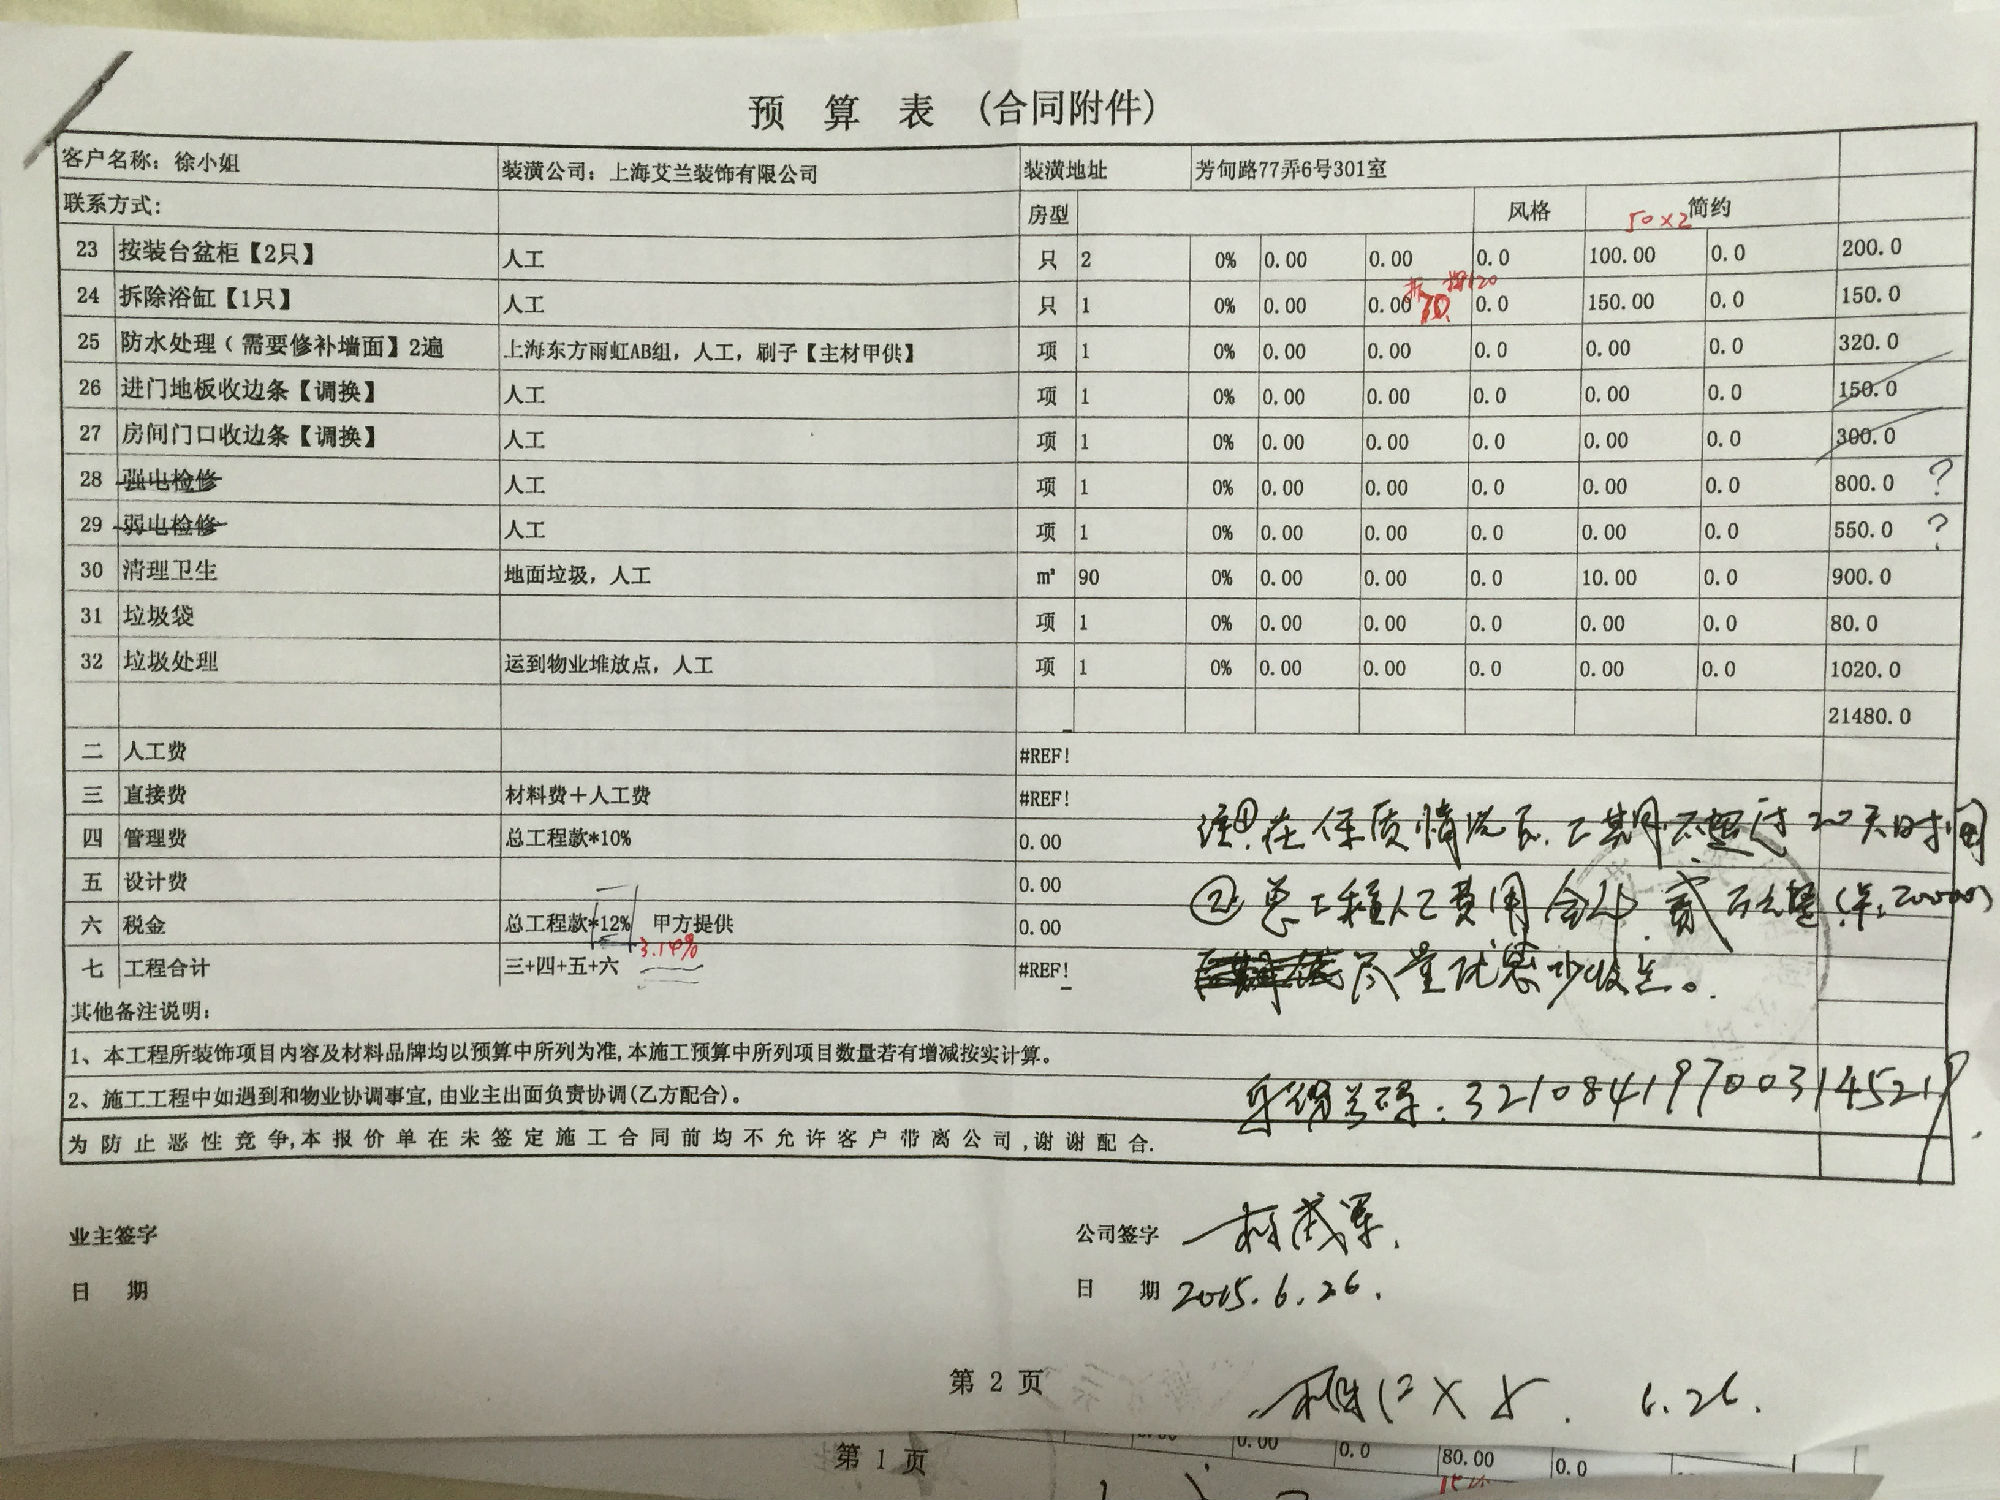 预 算 表 (合同附件)
客户名称: 徐小姐 装潢公司: 上海艾兰装饰有限公司 装潢地址 芳甸路77弄6号301室
联系方式: 房型 风格 简约
50×2
23 按装台盆柜【2只】 人工 只 2 0% 0.00 0.00 0.0 100.00 0.0 200.0
24 拆除浴缸【1只】 人工 只 1 0% 0.00 0.00 0.0 150.00 0.0 150.0
25 防水处理（需要修补墙面】2遍 上海东方雨虹AB组, 人工, 刷子【主材甲供】 项 1 0% 0.00 0.00 0.0 0.00 0.0 320.0
26 进门地板收边条【调换】 人工 项 1 0% 0.00 0.00 0.0 0.00 0.0 150.0
27 房间门口收边条【调换】 人工 项 1 0% 0.00 0.00 0.0 0.00 0.0 300.0
28 强电检修 人工 项 1 0% 0.00 0.00 0.0 0.00 0.0 800.0 ?
29 弱电检修 人工 项 1 0% 0.00 0.00 0.0 0.00 0.0 550.0 ?
30 清理卫生 地面垃圾, 人工 m² 90 0% 0.00 0.00 0.0 10.00 0.0 900.0
31 垃圾袋 项 1 0% 0.00 0.00 0.0 0.00 0.0 80.0
32 垃圾处理 运到物业堆放点, 人工 项 1 0% 0.00 0.00 0.0 0.00 0.0 1020.0
21480.0
二 人工费 #REF!
三 直接费 材料费＋人工费 #REF!
四 管理费 总工程款*10% 0.00
注①.在保质情况下.工期不超过20天时间
五 设计费 0.00
②总工程人工费用合计.贰万元整(¥:20000)
六 税金 总工程款*12% 甲方提供 0.00
3.14%
七 工程合计 三+四+五+六 #REF!
尽量优惠少收点。
其他备注说明:
1、本工程所装饰项目内容及材料品牌均以预算中所列为准,本施工预算中所列项目数量若有增减按实计算。
2、施工工程中如遇到和物业协调事宜,由业主出面负责协调(乙方配合)。
身份证号码: 321084197003145217
为防止恶性竞争,本报价单在未签定施工合同前均不允许客户带离公司,谢谢配合.
业主签字 公司签字
日 期 日 期 2015.6.26.
第 2 页
6.26.
第 1 页
0.00 0.0 80.00 0.0